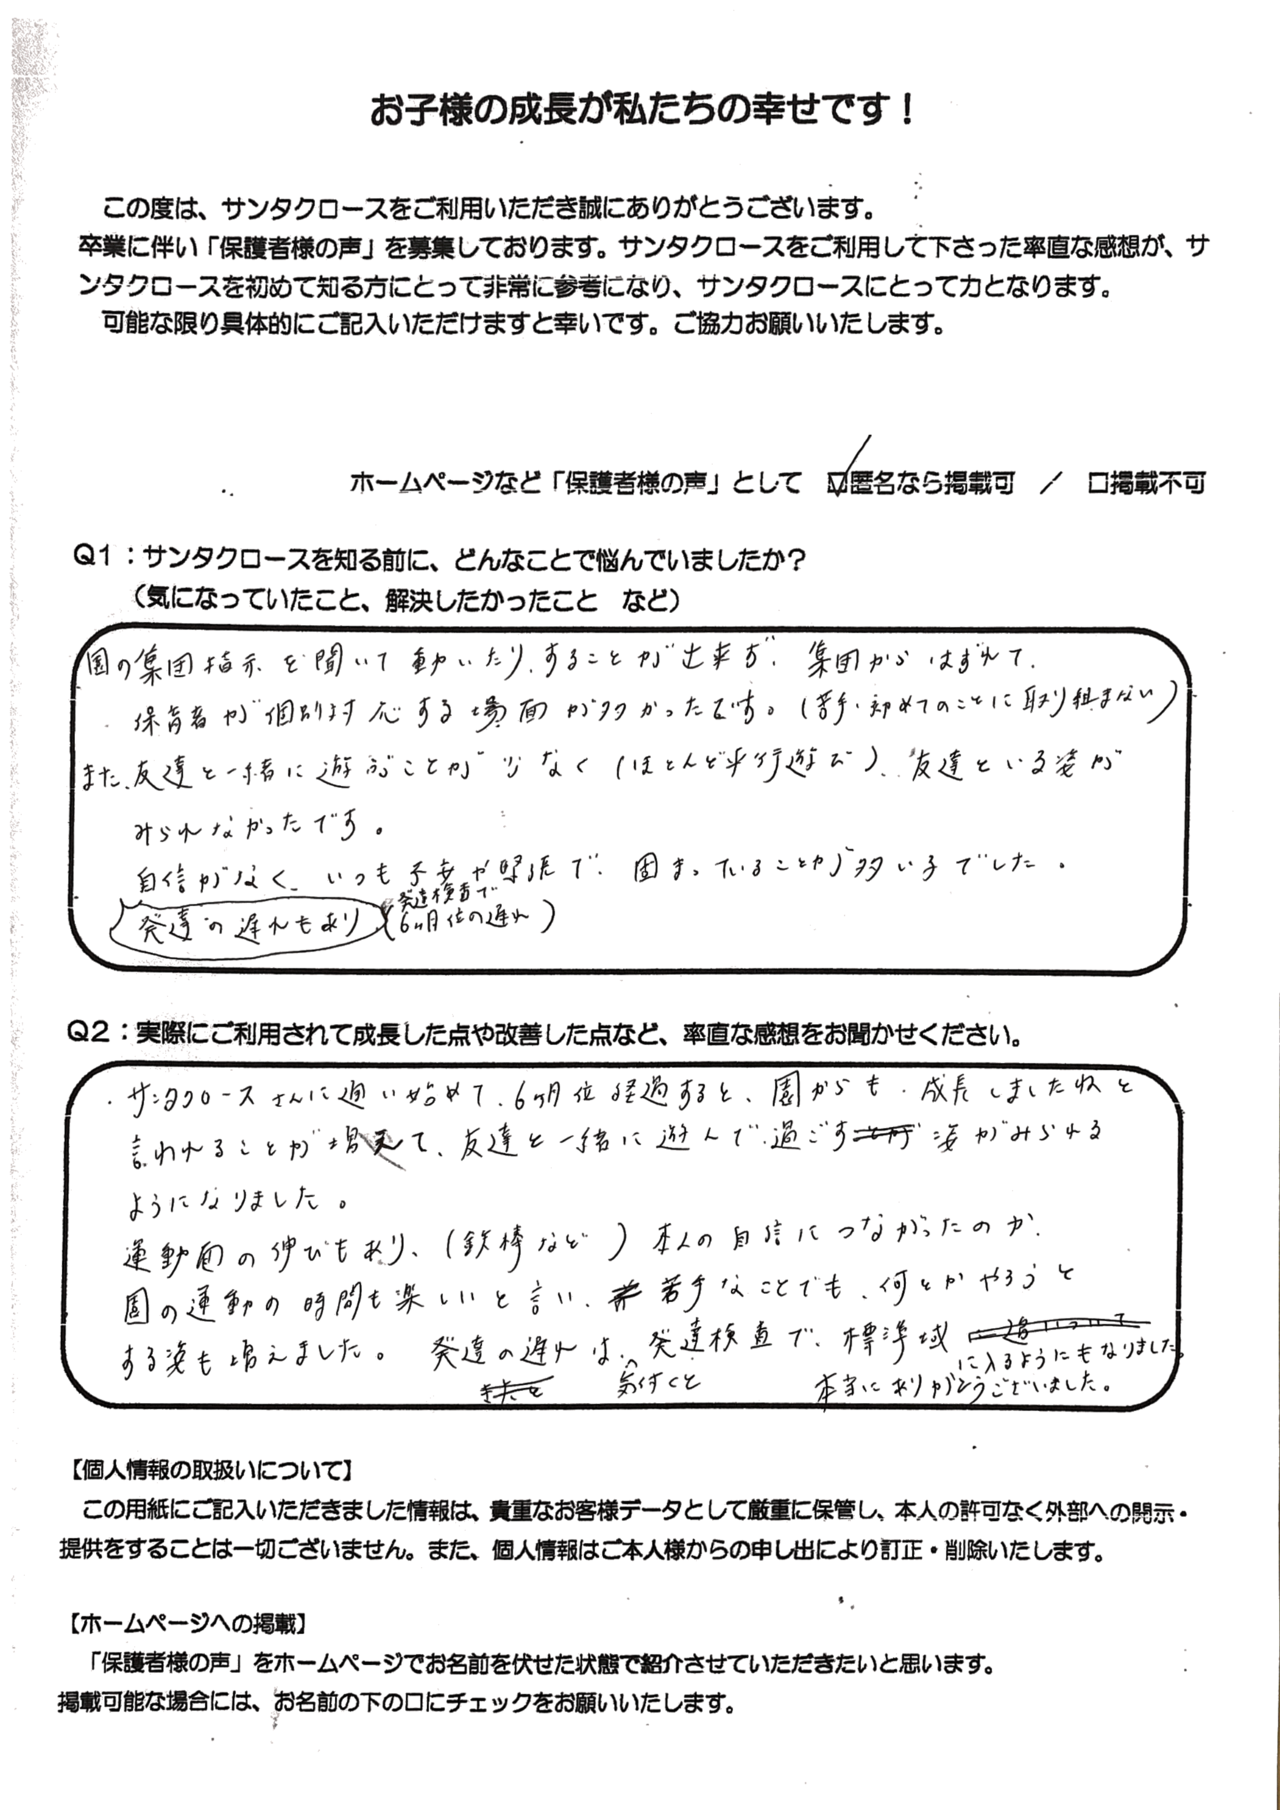 お子様の成長が私たちの幸せです！
この度は、サンタクロースをご利用いただき誠にありがとうございます。
卒業に伴い「保護者様の声」を募集しております。サンタクロースをご利用して下さった率直な感想が、サ
ンタクロースを初めて知る方にとって非常に参考になり、サンタクロースにとって力となります。
可能な限り具体的にご記入いただけますと幸いです。ご協力お願いいたします。
ホームページなど「保護者様の声」として ☑匿名なら掲載可 ／ □掲載不可
Q1：サンタクロースを知る前に、どんなことで悩んでいましたか？
（気になっていたこと、解決したかったこと など）
園の集団指示を聞いて動いたり、することが出来ず、集団からはずれて、
保育者が個別対応する場面が多かったです。（苦手・初めてのことに取り組まない）
また、友達と一緒に遊ぶことが少なく（ほとんど平行遊び）、友達といる姿が
みられなかったです。
自信がなく、いつも不安や緊張で、固まっていることが多い子でした。
発達の遅れもあり（発達検査で
6ヶ月位の遅れ）
Q2：実際にご利用されて成長した点や改善した点など、率直な感想をお聞かせください。
・サンタクロースさんに通い始めて、6ヶ月位経過すると、園からも、成長しましたねと
言われることが増えて、友達と一緒に遊んで過ごす姿がみられる
ようになりました。
運動面の伸びもあり、（鉄棒など）本人の自信につながったのか、
園の運動の時間も楽しいと言い、苦手なことでも、何とかやろうと
する姿も増えました。発達の遅れは、気付くと発達検査で、標準域
に入るようにもなりました。
本当にありがとうございました。
【個人情報の取扱いについて】
この用紙にご記入いただきました情報は、貴重なお客様データとして厳重に保管し、本人の許可なく外部への開示・
提供をすることは一切ございません。また、個人情報はご本人様からの申し出により訂正・削除いたします。
【ホームページへの掲載】
「保護者様の声」をホームページでお名前を伏せた状態で紹介させていただきたいと思います。
掲載可能な場合には、お名前の下の口にチェックをお願いいたします。